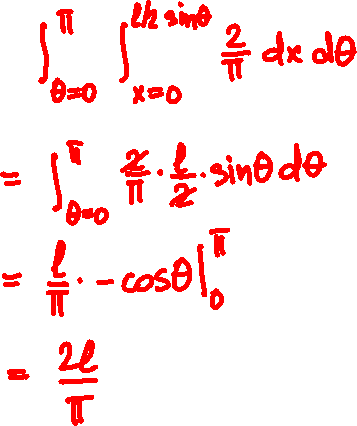 ∫_{θ=0}^{π} ∫_{x=0}^{l/2 sinθ} 2/π dx dθ
= ∫_{θ=0}^{π} 2/π · l/2 · sinθ dθ
= l/π · -cosθ |_0^π
= 2l/π